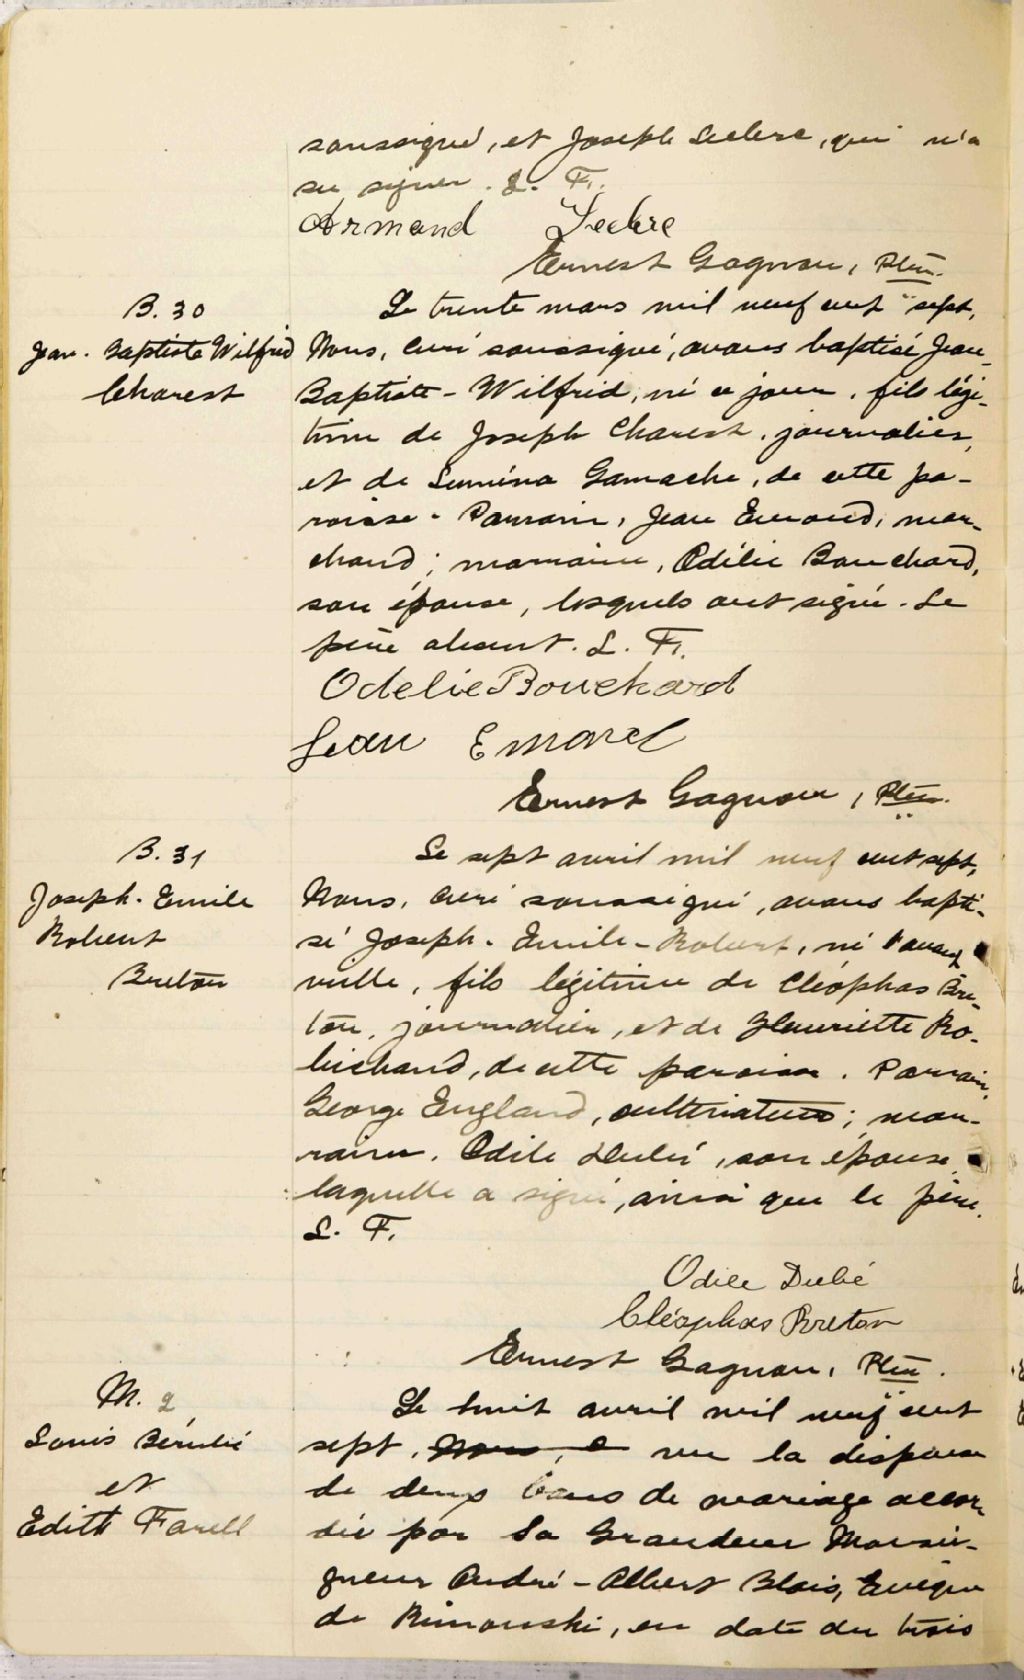 soussigné, et Joseph Leclerc, qui n'a
su signer. L. F.
Armand Leclerc
Ernest Gagnon, Ptre.
B. 30
Jean-Baptiste Wilfrid
Charest
Le trente mars mil neuf cent sept,
Nous, curé soussigné, avons baptisé Jean-
Baptiste-Wilfrid, né ce jour, fils légi-
time de Joseph Charest, journalier,
et de Lumina Gamache, de cette pa-
roisse. Parrain, Jean Emond, mar-
chand; marraine, Odélie Bouchard,
son épouse, lesquels ont signé. Le
père absent. L. F.
Odelie Bouchard
Jean Emond
Ernest Gagnon, Ptre.
B. 31
Joseph-Emile
Robert
Breton
Le sept avril mil neuf cent sept,
Nous, curé soussigné, avons bapti-
sé Joseph-Emile-Robert, né l'avant
veille, fils légitime de Cléophas Bre-
ton, journalier, et de Henriette Ro-
bichaud, de cette paroisse. Parrain,
George England, cultivateur; mar-
raine, Odile Dubé, son épouse,
laquelle a signé, ainsi que le père.
L. F.
Odile Dubé
Cléophas Breton
Ernest Gagnon, Ptre.
M. 2
Louis Bérubé
et
Edith Farell
Le huit avril mil neuf cent
sept, Nous, vu la dispense
de deux bans de mariage accor-
dée par Sa Grandeur Monsei-
gneur André-Albert Blais, Evêque
de Rimouski, en date du trois